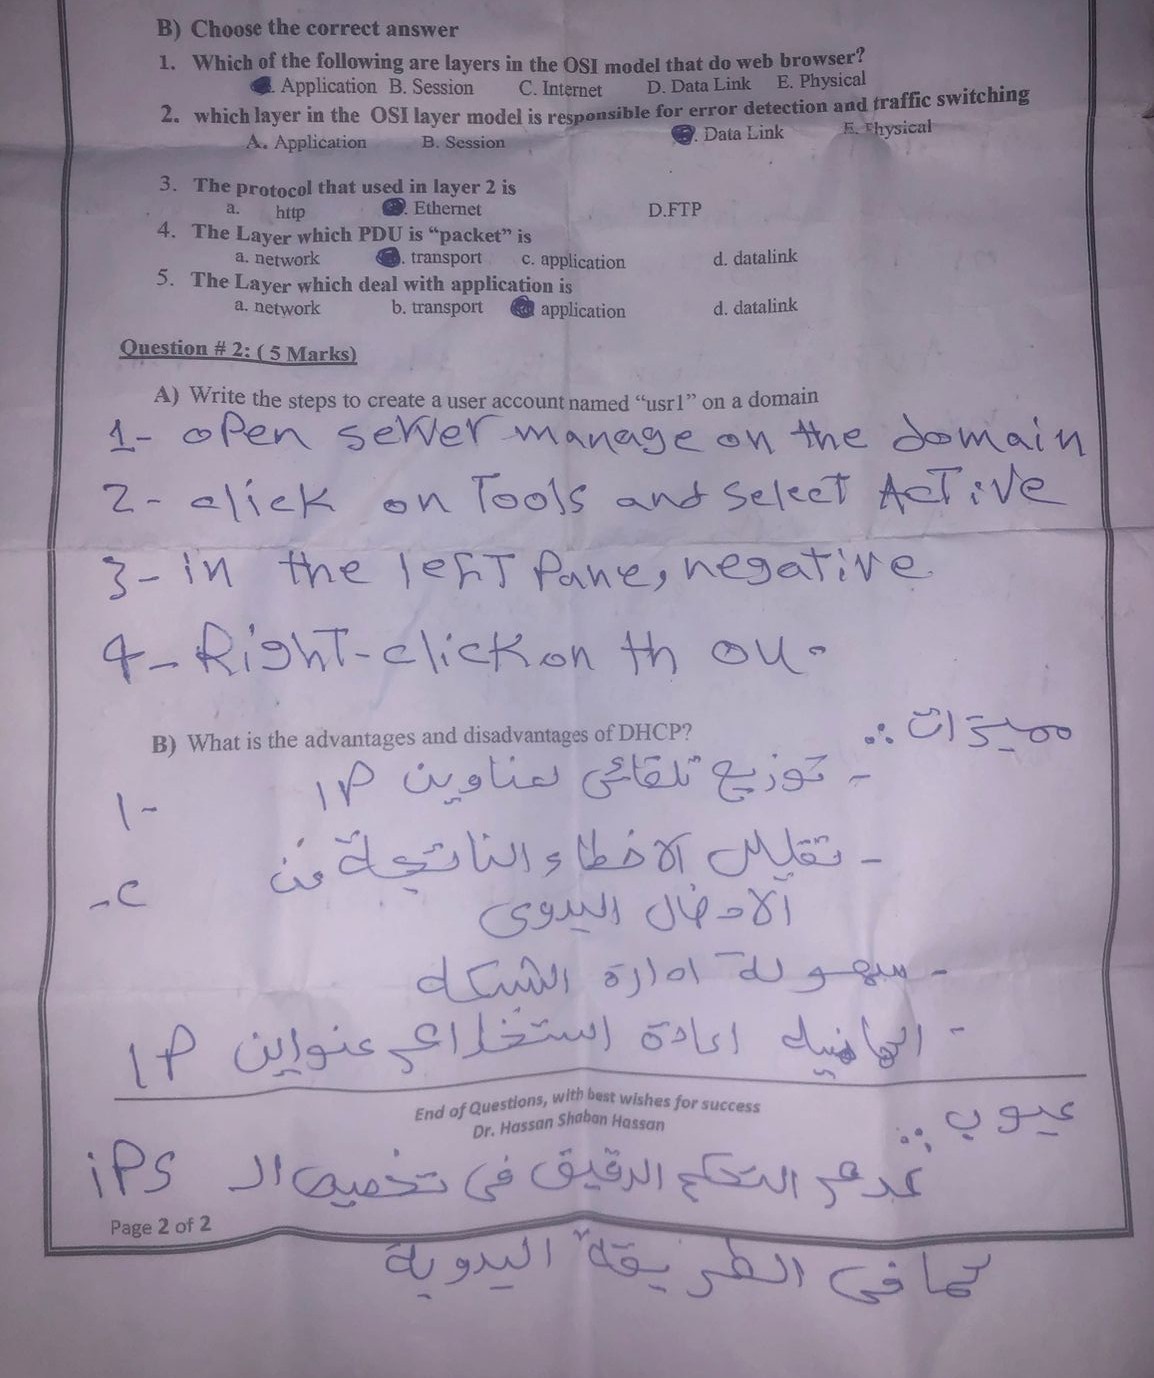 B) Choose the correct answer
1. Which of the following are layers in the OSI model that do web browser?
. Application B. Session C. Internet D. Data Link E. Physical
2. which layer in the OSI layer model is responsible for error detection and traffic switching
A. Application B. Session . Data Link E. Physical
3. The protocol that used in layer 2 is
a. http . Ethernet D.FTP
4. The Layer which PDU is “packet” is
a. network . transport c. application d. datalink
5. The Layer which deal with application is
a. network b. transport application d. datalink
Question # 2: ( 5 Marks)
A) Write the steps to create a user account named “usr1” on a domain
1- open server manage on the domain
2- click on Tools and select Active
3- in the left Pane, negative
4- Right-click on th ou.
B) What is the advantages and disadvantages of DHCP?
مميزات :
1- - توزيع تلقائي لعناوين IP
2- - تقليل الاخطاء الناتجة من
الادخال اليدوى
- سهولة ادارة الشبكه
- اعادة استخدام عنواين IP
End of Questions, with best wishes for success
Dr. Hassan Shaban Hassan
عيوب :
عدم التحكم الدقيق فى تخصيص ال iPs
Page 2 of 2
كما فى الطريقة اليدوية